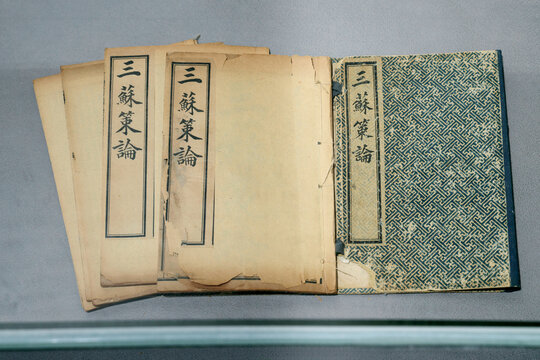 三蘇策論
三蘇策論
三蘇策論